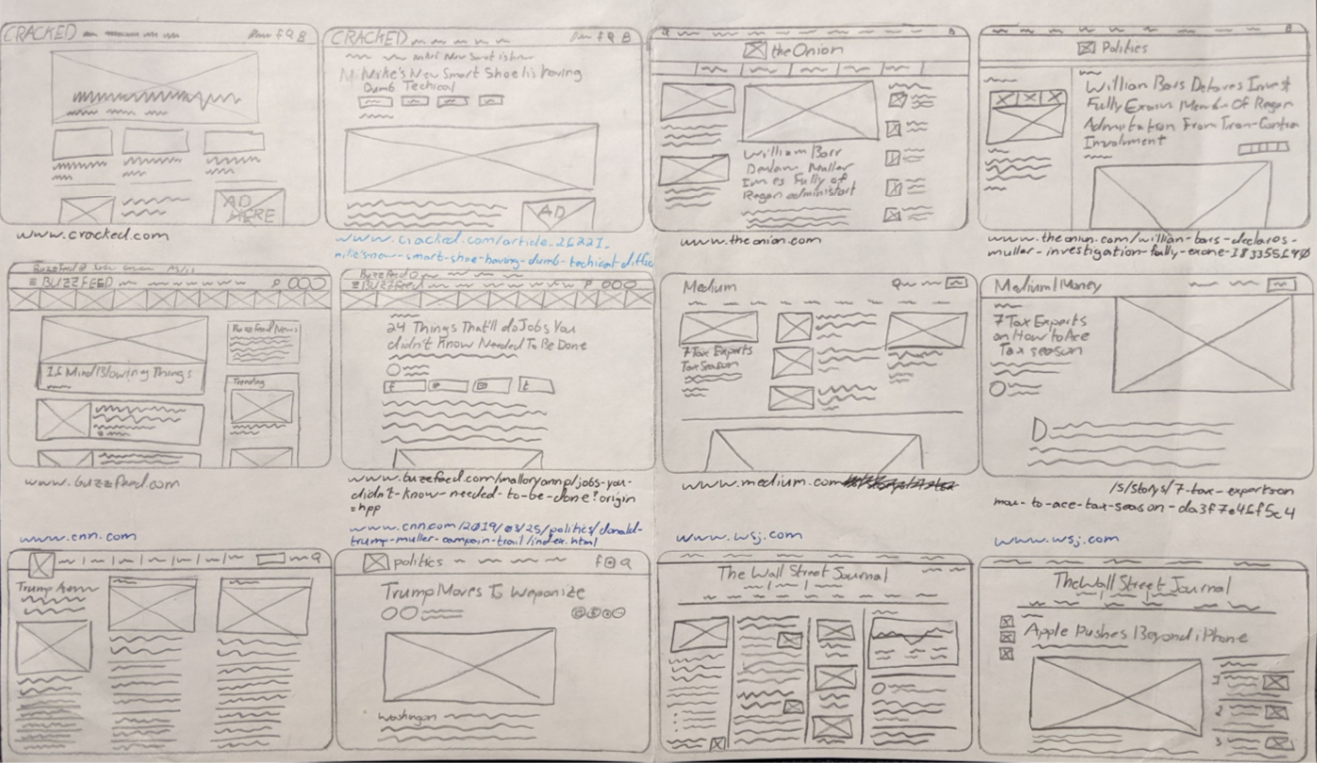 CRACKED
AD
HERE
www.cracked.com
CRACKED
Mike's New Smart Shoe Is having
Dumb Techical
AD
www.cracked.com/article_26221_
mike's-new-smart-shoe-having-dumb-techical-diffic
the Onion
William Barr
Declars Muller
Im es Fully of
Regan administart
www.theonion.com
Politics
Willian Bars Delcares Invest
Fully Exone Membr Of Regan
Admistation From Iran-Contra
Involvment
www.theoniun.com/willian-bars-declares-
muller-investigation-fully-exone-1833551
BUZZFEED
Buzzfeed News
15 Mind Blowing Things
Trending
www.buzzfeed.com
Buzzfeed
BUZZFEED
24 Things That'll do Jobs You
didn't Know Needed To Be Done
f
t
www.buzzfeed.com/malloryannp/jobs-you-
didn't-know-needed-to-be-done?origin
=hpp
Medium
7 Tax Experts
Tax Season
www.medium.com
Medium | Money
7 Tax Experts
on How to Ace
Tax season
D
/s/storys/7-tax-experts-on
how-to-ace-tax-season-da3f7e46f5c4
www.cnn.com
Trump Admn
www.cnn.com/2019/03/25/politics/donald-
trump-muller-campain-trail/index.html
politics
Trump Moves To Weponize
Washington
www.wsj.com
The Wall Street Journal
www.wsj.com
The Wall Street Journal
Apple Pushes Beyond iPhone
1
2
3